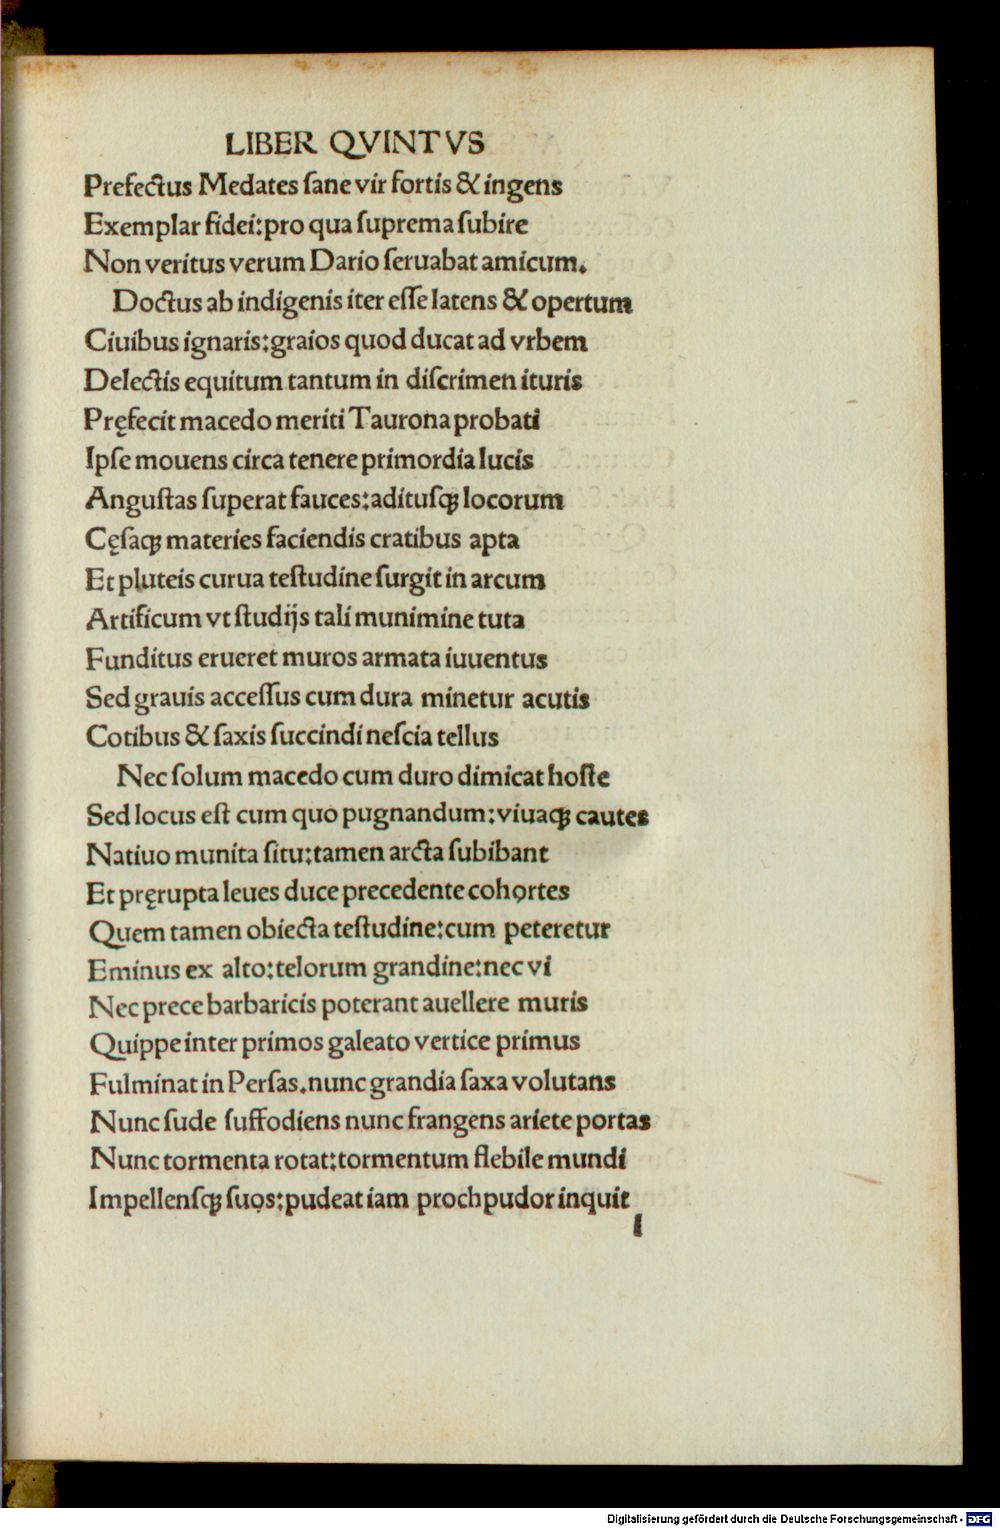 LIBER QVINTVS
Prefectus Medates ſane vir fortis & ingens
Exemplar fidei:pro qua ſuprema ſubire
Non veritus verum Dario ſeruabat amicum.
Doctus ab indigenis iter eſſe latens & opertum
Ciuibus ignaris:graios quod ducat ad vrbem
Delectis equitum tantum in diſcrimen ituris
Pręfecit macedo meriti Taurona probati
Ipſe mouens circa tenere primordia lucis
Anguſtas ſuperat fauces:adituſqꝫ locorum
Cęſaqꝫ materies faciendis cratibus apta
Et pluteis curua teſtudine ſurgit in arcum
Artificum vt ſtudijs tali munimine tuta
Funditus erueret muros armata iuuentus
Sed grauis acceſſus cum dura minetur acutis
Cotibus & ſaxis ſuccindi neſcia tellus
Nec ſolum macedo cum duro dimicat hoſte
Sed locus eſt cum quo pugnandum:viuaqꝫ cautes
Natiuo munita ſitu:tamen arcta ſubibant
Et pręrupta leues duce precedente cohortes
Quem tamen obiecta teſtudine:cum peteretur
Eminus ex alto:telorum grandine:nec vi
Nec prece barbaricis poterant auellere muris
Quippe inter primos galeato vertice primus
Fulminat in Perſas.nunc grandia ſaxa volutans
Nunc ſude ſuffodiens nunc frangens ariete portas
Nunc tormenta rotat:tormentum flebile mundi
Impellenſqꝫ ſuos:pudeat iam proch pudor inquit
l
Digitalisierung gefördert durch die Deutsche Forschungsgemeinschaft - DFG